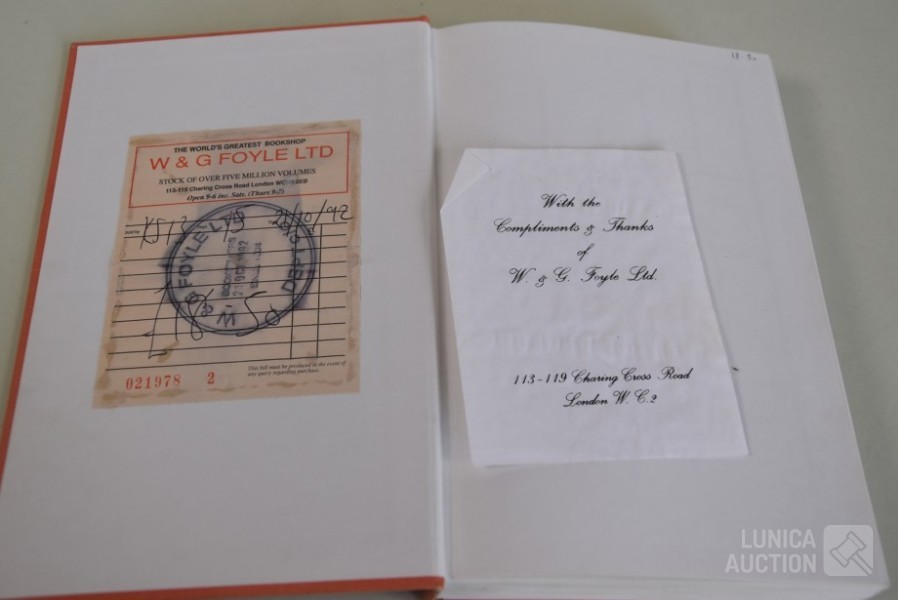 THE WORLD'S GREATEST BOOKSHOP
W & G FOYLE LTD
STOCK OF OVER FIVE MILLION VOLUMES
113-119 Charing Cross Road London
Open 9-6 inc. Sats. (Thurs 9-7)
21/10/92
W & G FOYLE LTD
DEPT
This bill must be produced in the event of
any query regarding purchase.
021978 2
With the
Compliments & Thanks
of
W. & G. Foyle Ltd.
113-119 Charing Cross Road
London W.C.2
LUNICA
AUCTION